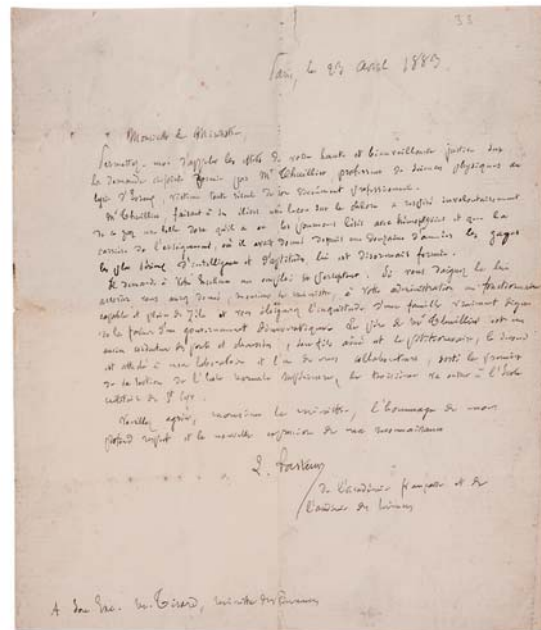 33
Paris, le 23 Avril 1883.
Monsieur le Ministre,
Permettez-moi d'appeler les effets de votre haute et bienveillante justice sur
la demande ci-jointe formée par Mr Thuillier, professeur de sciences physiques au
lycée d', victime toute récente de son dévouement professionnel.
Mr Thuillier, faisant à ses élèves une leçon sur le chlore a respiré involontairement
de ce gaz une telle dose qu'il a eu les poumons lésés assez et que la
carrière de l'enseignement, où il avait donné depuis une douzaine d'années les gages
les plus d'intelligence et d'aptitude, lui est désormais fermée.
Il demande à Votre Excellence un emploi de percepteur. Si vous daignez le lui
accorder vous aurez donné, monsieur le ministre, à votre administration un fonctionnaire
capable et plein de zèle et vous l'inquiétude d'une famille vraiment digne
de la faveur d'un gouvernement démocratique. Le père de Mr Thuillier est un
ancien conducteur des ponts et chaussées, son fils aîné est le pétitionnaire, le second
est attaché à mon laboratoire et l'un de mes collaborateurs, sorti le premier
de sa section de l'Ecole normale supérieure, le troisième va entrer à l'Ecole
militaire de St Cyr.
Veuillez agréer, monsieur le ministre, l'hommage de mon
profond respect et la nouvelle expression de ma reconnaissance
L. Pasteur
de l'académie française et de
l'académie des sciences
A Son Exc. Mr. Tirard, ministre des finances